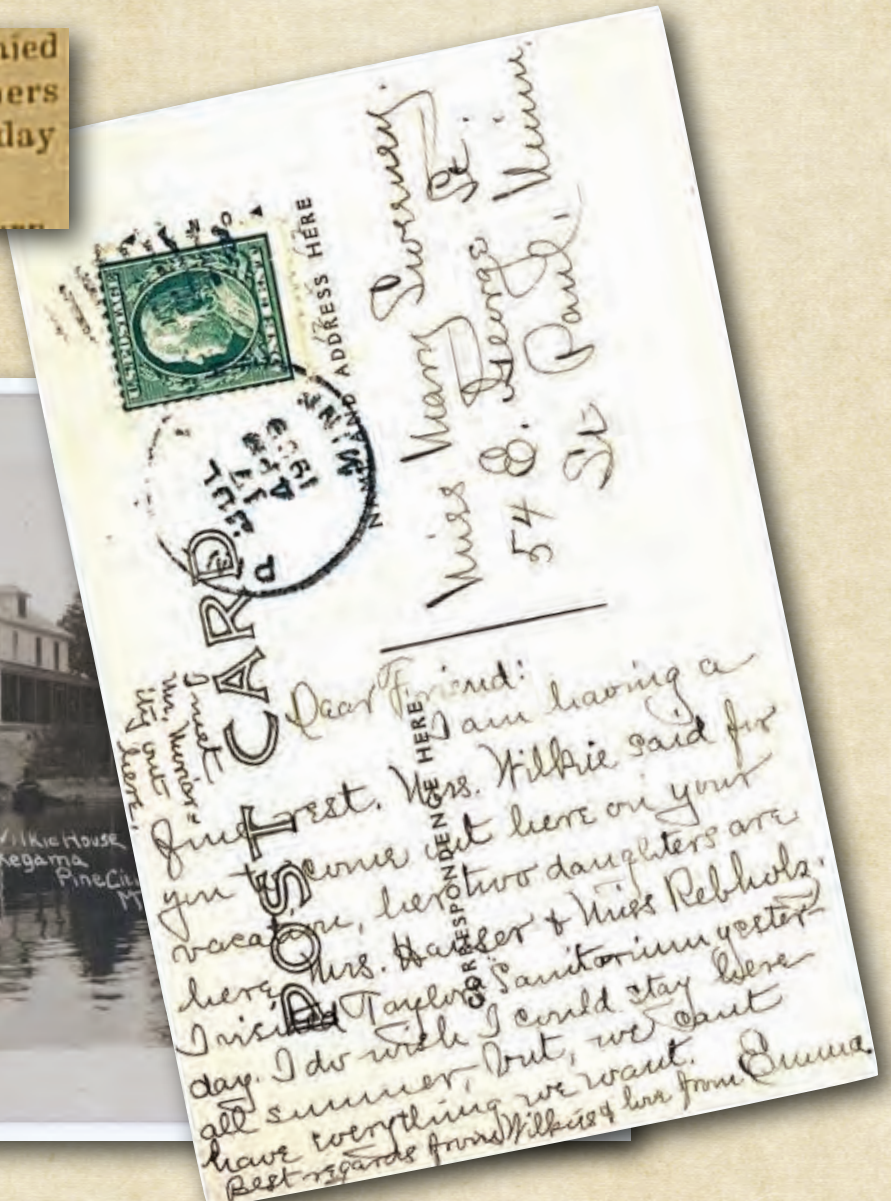 nied
ners
day
Wilkie House
kegama
Pine City
POST CARD
NAME AND ADDRESS HERE
CORRESPONDENCE HERE
U.S. POSTAGE
ONE CENT
JUL
17
1909
MINN
Miss Mary Sweeney.
54 E. George St.
St Paul, Minn.
I met
Mr.
ity out
here.
Dear Friend:
I am having a
fine rest. Mrs. Wilkie said for
you to come out here on your
vacation, her two daughters are
here, Mrs. Hauser & Miss Rebholz.
I visited Taylors Sanitorium yester-
day. I do wish I could stay here
all summer, but, we cant
have everything we want.
Best regards from Wilkies & love from Emma